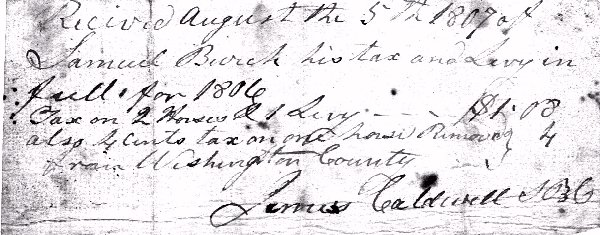 Recived August the 5th 1807 of
Samuel Burch his tax and Levy in
full for 1806
Tax on 2 Horses & 1 Levy - - - $1.08
also 4 cents tax on one horse Removed 4
from Wishington County
James Caldwell